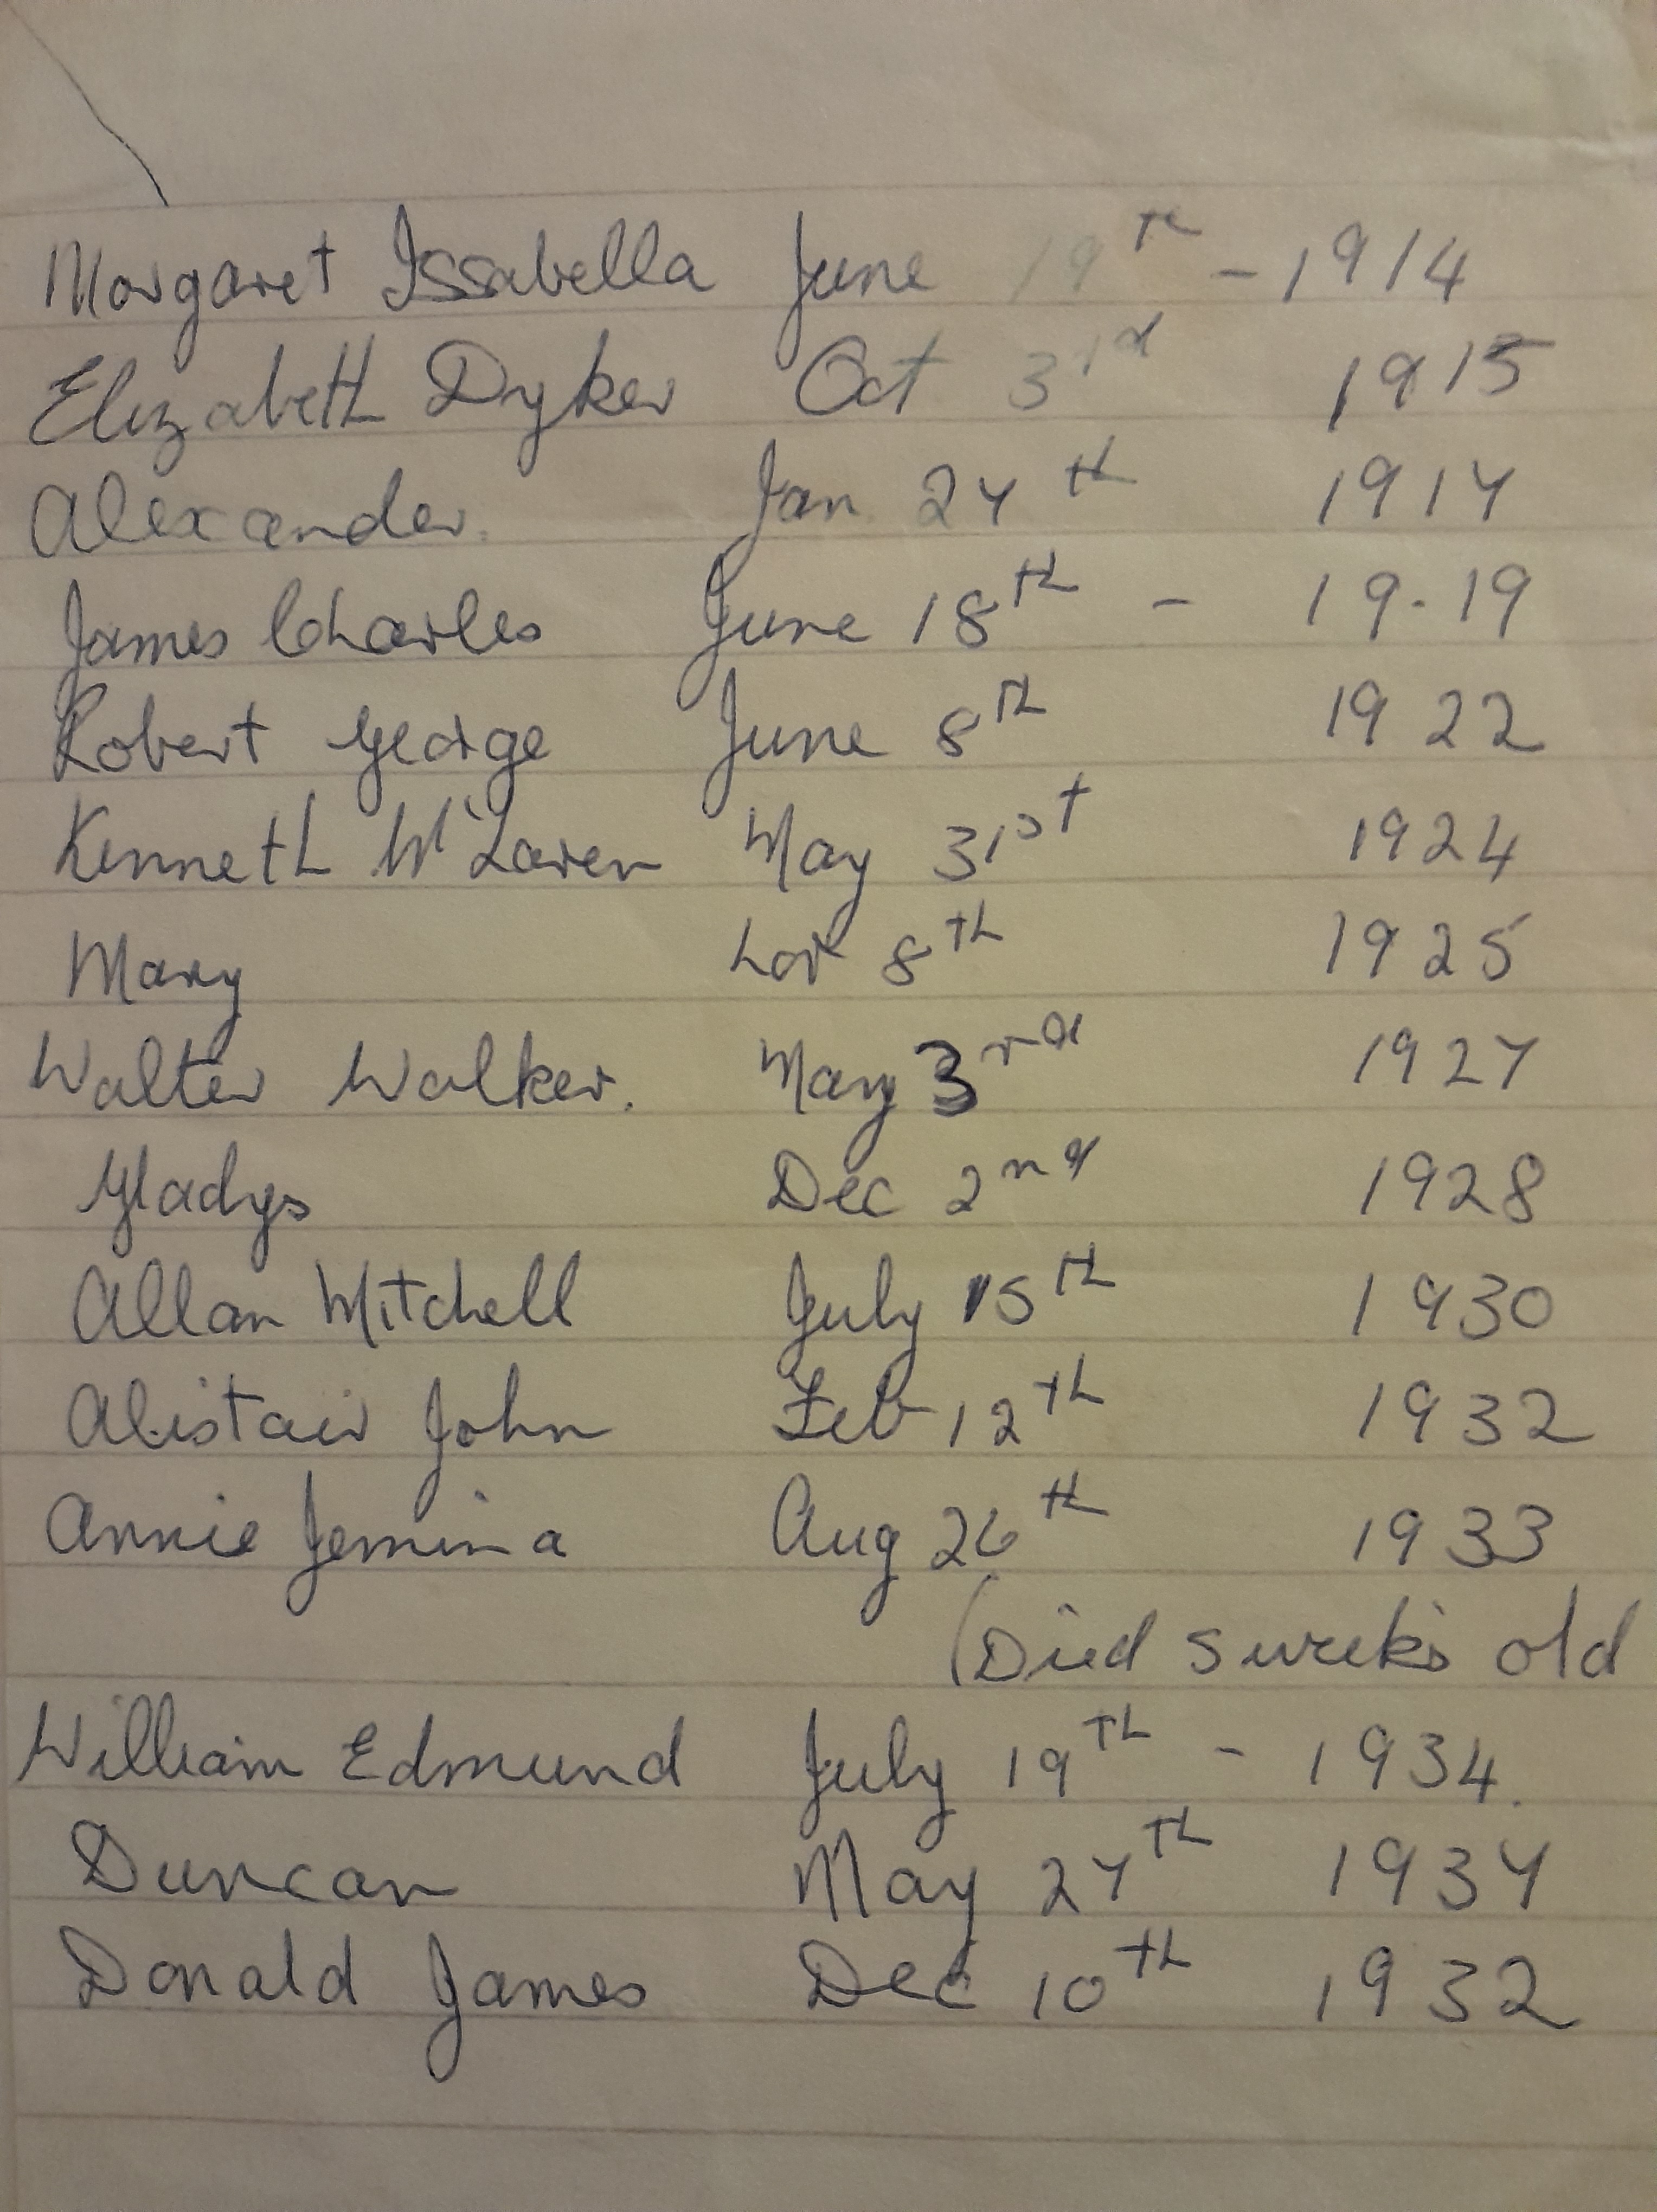 Margaret Issabella June 19th - 1914
Elizabeth Dyker Oct 3rd 1915
Alexander. Jan 27th 1917
James Charles June 18th - 19.19
Robert George June 8th 1922
Kenneth McLaren May 31st 1924
Mary Nov 8th 1925
Walter Walker. May 3rd 1927
Gladys Dec 2nd 1928
Allan Mitchell July 15th 1930
Alistair John Feb 12th 1932
Annie Jemima Aug 26th 1933
(Died 5 weeks old
William Edmund July 19th - 1934.
Duncan May 27th 1937
Donald James Dec 10th 1932